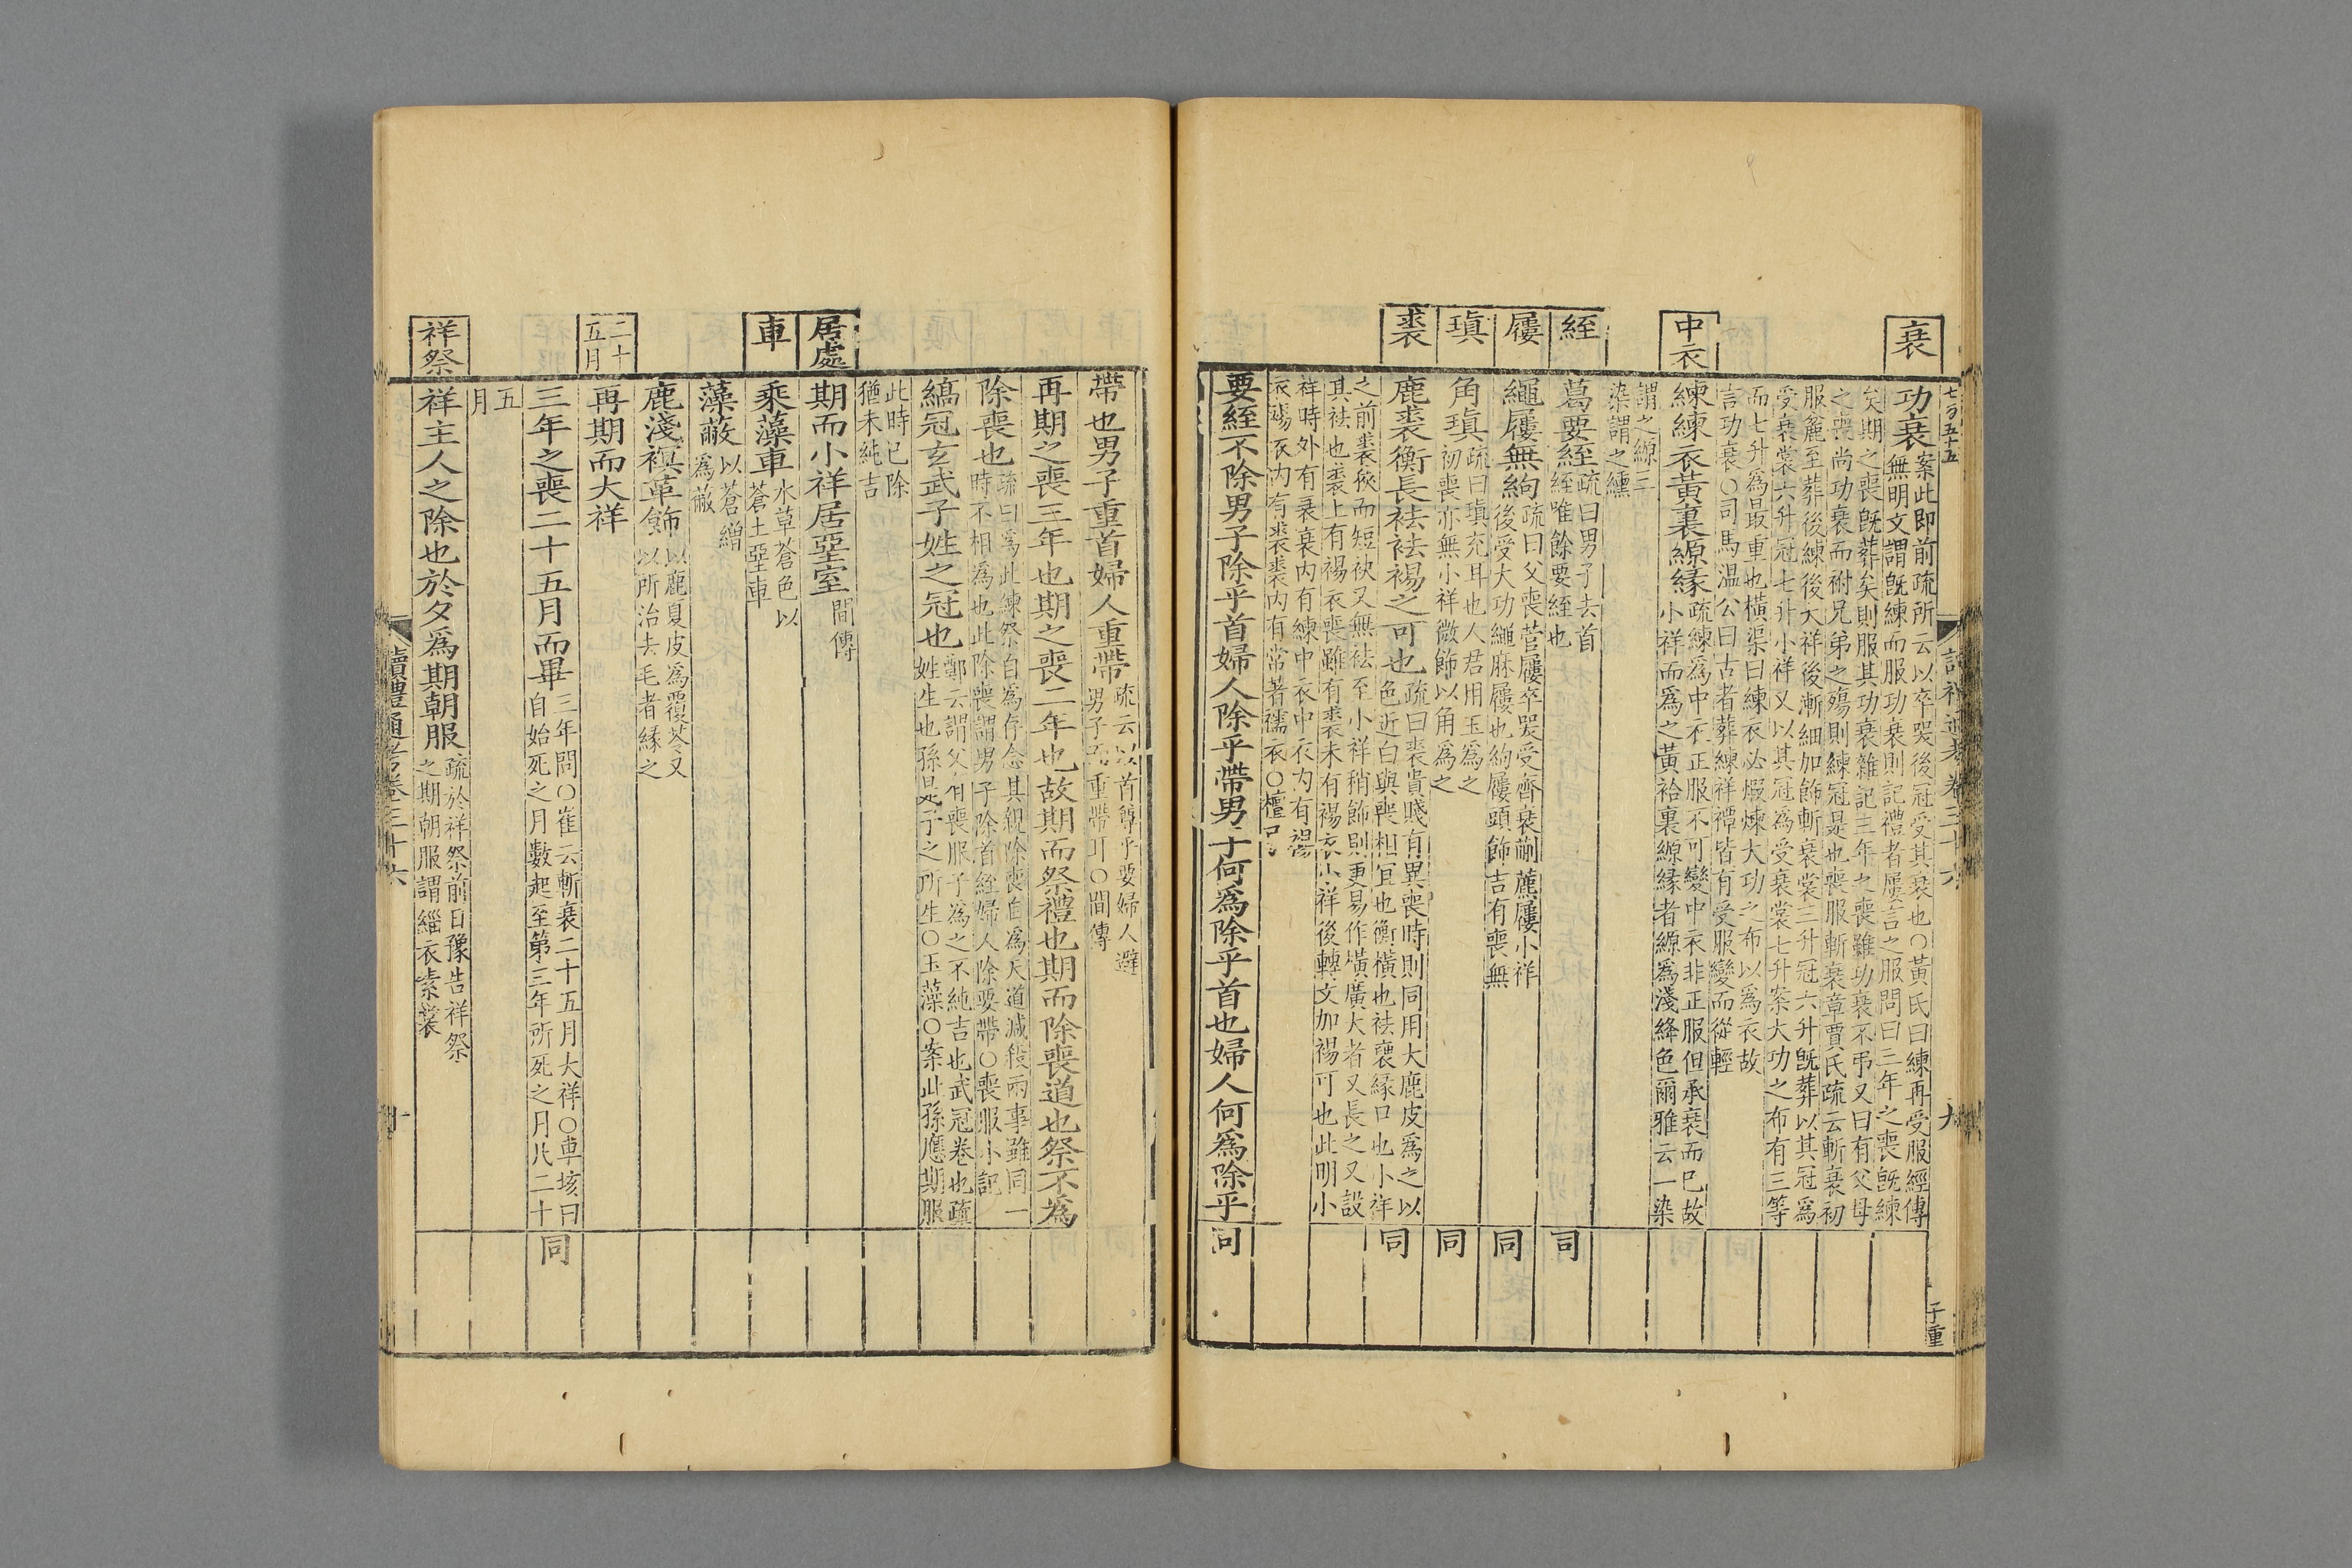 七百五十五
讀禮通考卷三十六
九
子重
衰
功衰
案此即前疏所云以卒哭後冠受其衰也○黃氏曰練再受服經傳
無明文謂旣練而服功衰則記禮者屢言之服問曰三年之喪旣練
矣期之喪旣葬矣則服其功衰雜記三年之喪雖功衰不弔又曰有父母
之喪尚功衰而祔兄弟之殤則練冠是也喪服斬衰章賈氏疏云斬衰初
服麤至葬後練後大祥後漸細加飾斬衰裳三升冠六升旣葬以其冠爲
受衰裳六升冠七升小祥又以其冠爲受衰裳七升案大功之布有三等
而七升爲最重也橫渠曰練衣必煆煉大功之布以爲衣故
言功衰○司馬溫公曰古者葬練祥禫皆有受服變而從輕
中衣
練練衣黃裏縓緣
疏練爲中衣正服不可變中衣非正服但承衰而已故
小祥而爲之黃袷裏縓緣者縓爲淺絳色爾雅云一染
謂之縓三
染謂之纁
絰
葛要絰
疏曰男子去首
絰唯餘要絰也
同
屨
繩屨無絇
疏曰父喪菅屨卒哭受齊衰蒯藨屨小祥
後受大功繩麻屨也絇屨頭飾吉有喪無
同
瑱
角瑱
疏曰瑱充耳也人君用玉爲之
初喪亦無小祥微飾以角爲之
同
裘
鹿裘衡長袪袪裼之可也
疏曰裘貴賤有異喪時則同用大鹿皮爲之以
色近白與喪相宜也衡橫也袪褎緣口也小祥
之前裘狹而短袂又無袪至小祥稍飾則更易作橫廣大者又長之又設
其袪也裘上有裼衣喪雖有裘未有裼衣小祥後轉文加裼可也此明小
祥時外有衰衰內有練中衣中衣內有裼
衣裼衣內有裘裘內有常著襦衣○檀弓
同
要絰不除男子除乎首婦人除乎帶男子何爲除乎首也婦人何爲除乎
同
帶也男子重首婦人重帶
疏云以首尊于要婦人避
男子而重帶耳○間傳
再期之喪三年也期之喪二年也故期而祭禮也期而除喪道也祭不爲
除喪也
疏曰爲此練祭自爲存念其親除喪自爲天道減殺兩事雖同一
時不相爲也此除喪謂男子除首絰婦人除要帶○喪服小記
縞冠玄武子姓之冠也
鄭云謂父有喪服子爲之不純吉也武冠卷也疏
姓生也孫是子之所生○玉藻○案此孫應期服
此時已除
猶未純吉
居處
期而小祥居堊室
間傳
車
乘藻車
水草蒼色以
蒼土堊車
藻蔽
以蒼繒
爲蔽
鹿淺幎革飾
以鹿夏皮爲覆笭又
以所治去毛者緣之
二十五月
再期而大祥
三年之喪二十五月而畢
三年問○崔云斬衰二十五月大祥○車垓曰
自始死之月數起至第三年所死之月凡二十
五
月
同
祥祭
祥主人之除也於夕爲期朝服
疏於祥祭前日豫告祥祭
之期朝服謂緇衣素裳
讀禮通考卷三十六
十